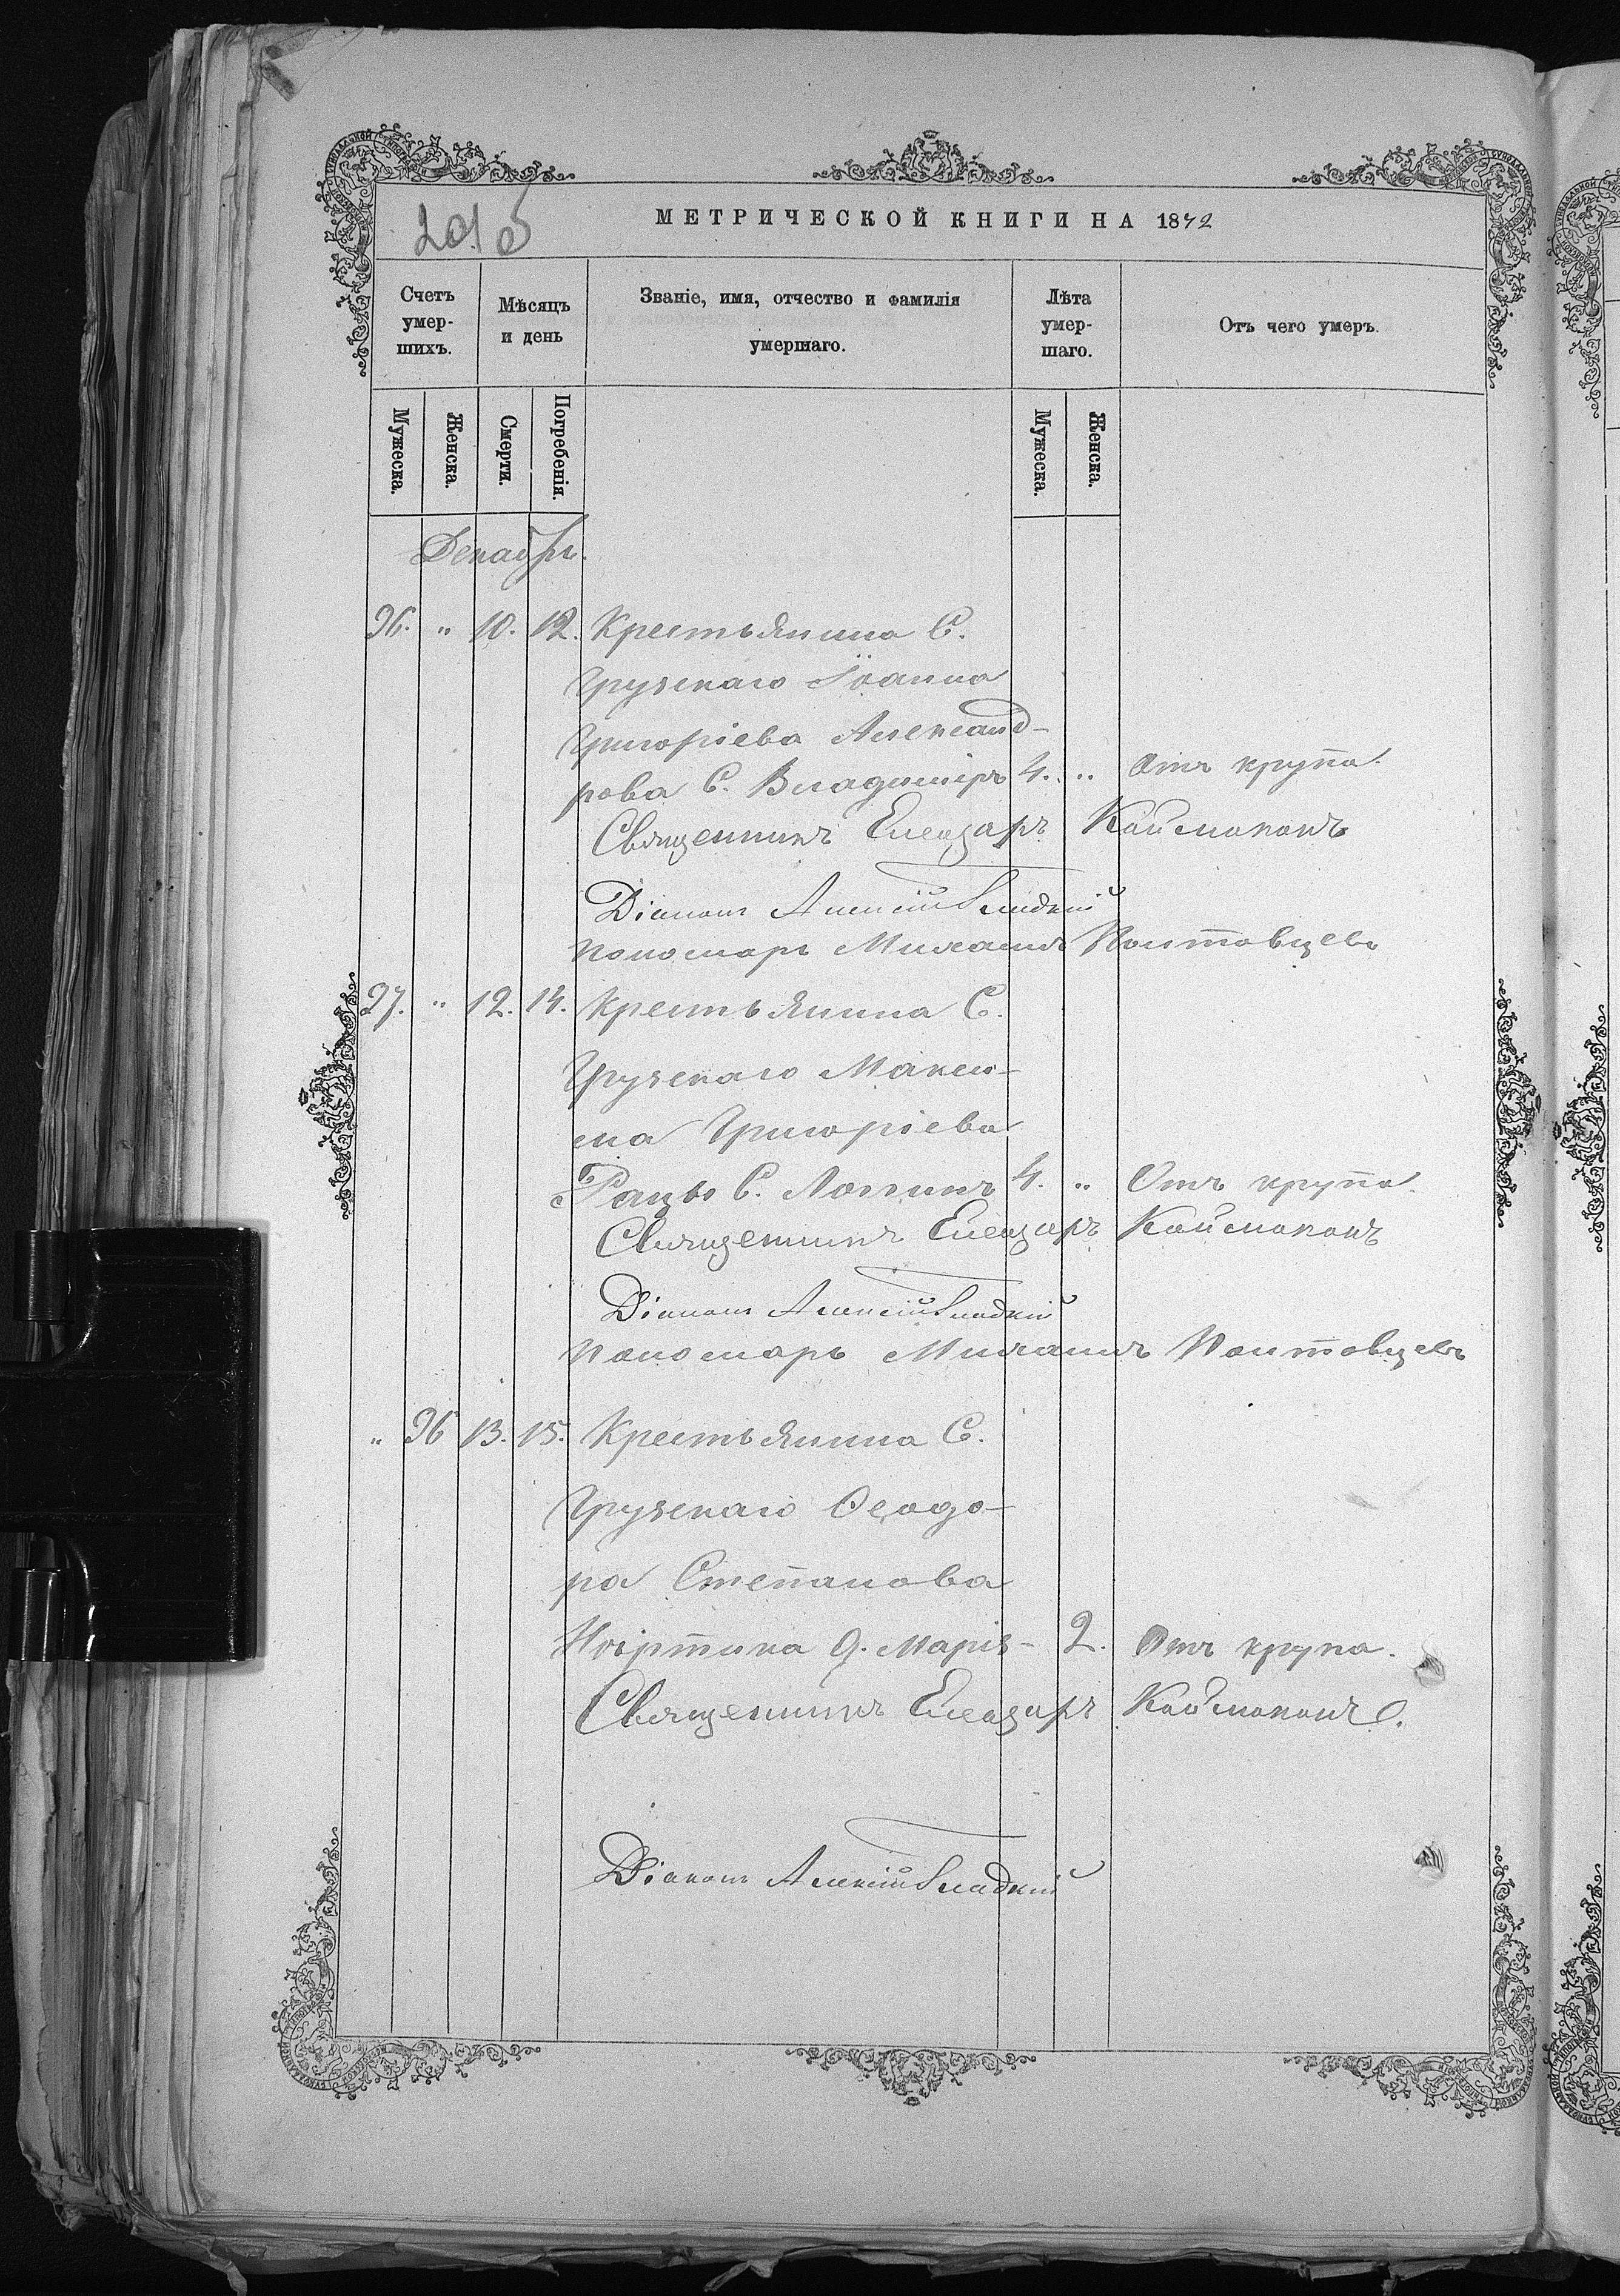 201 б
МЕТРИЧЕСКОЙ КНИГИ НА 1872
Счетъ умер-шихъ.
Мѣсяцъ и день
Званіе, имя, отчество и фамилія умершаго.
Лѣта умер-шаго.
Отъ чего умеръ.
Мужеска. Женска. Смерти. Погребенія. Мужеска. Женска.
Декабрь.
96. " 10. 12. Крестьянина С.
Грузскаго Іоанна
Григоріева Александ-
рова С. Владиміръ 4. " Отъ крупа.
Священникъ Елеазаръ Каймаканъ
Діаконъ Алексій Гладкій
Пономарь Михаилъ Полтовцевъ
97. " 12. 14. Крестьянина С.
Грузскаго Макси-
ма Григоріева
С. Логинъ 4. " Отъ крупа.
Священникъ Елеазаръ Каймаканъ
Діаконъ Алексій Гладкій
Пономарь Михаилъ Полтовцевъ
" 96 13. 15. Крестьянина С.
Грузскаго Ѳеодо-
ра Степанова
Д. Марія - 2. Отъ крупа.
Священникъ Елеазаръ Каймаканъ.
Діаконъ Алексій Гладкій